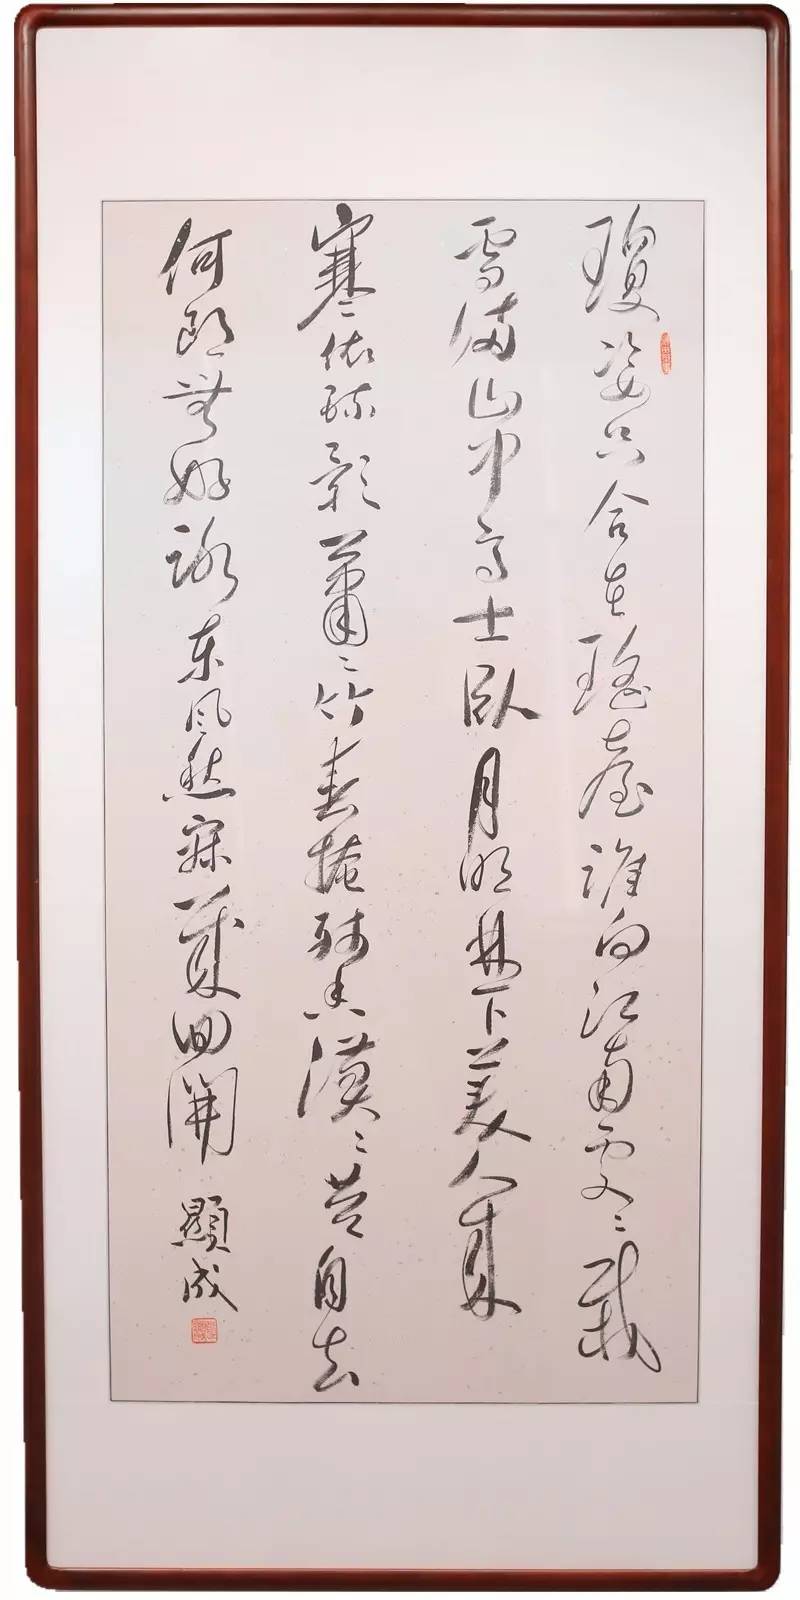 瓊姿只合在瑤臺誰向江南處々栽
雪滿山中高士臥月明林下美人來
寒依疏影蕭々竹春掩殘香漠々苔自去
何郎無好詠東風愁寂幾回開 顯成